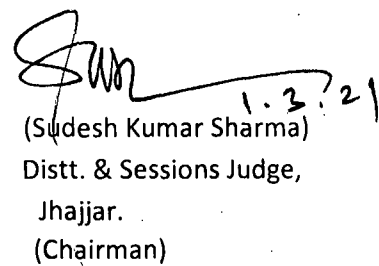 1.3.21
(Sudesh Kumar Sharma)
Distt. & Sessions Judge,
Jhajjar.
(Chairman)